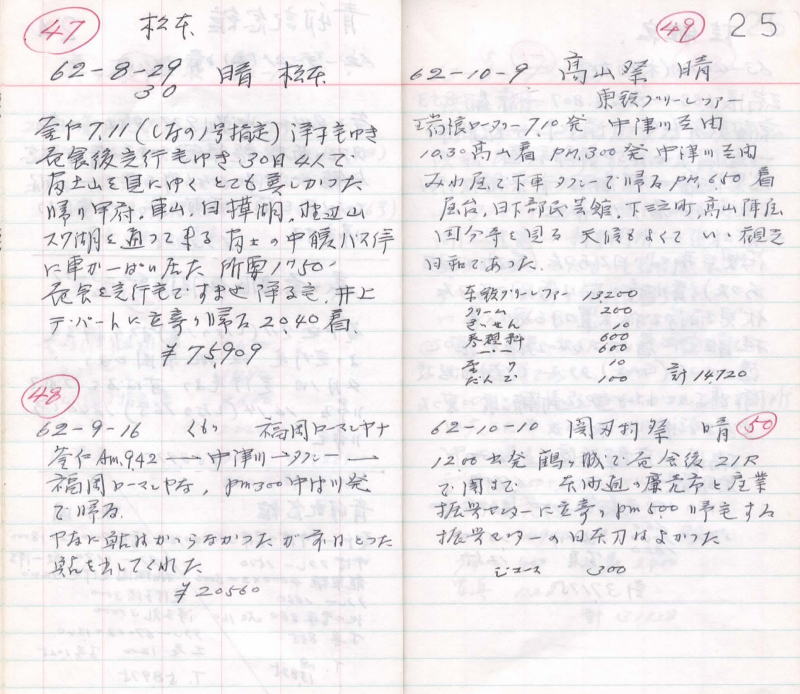 47
松本
62-8-29 晴 松本
30
釜仁7.11(しなの1号指定)洋子もゆき
昼食後立行もゆき、30日4人で
富士山を見にゆく とても美しかった
帰り甲府,車山,白樺湖,
を通って来る 富士の中腹バス停
に車がいっぱい居た 所要1750.
昼食を立行宅ですませ 洋子宅、井上
デパートに立寄り帰る 20,40着.
¥75,909
48
62-9-16 くもり 福岡ローマンヤナ
釜仁Am.9.42→中津川→タクシー→
福岡ローマンやな, pm300中津川発
で帰る.
やなに鮎はかからなかったが
鮎を出してくれた
¥20560
49
25
62-10-9 高山祭 晴
東鉄グリーンツァー
瑞浪ロータリー7.10発 中津川経由
10.30高山着 PM.300発 中津川経由
で下車 タクシーで帰る PM.6.50着
屋台,日下部民芸館,下三之町,高山陣屋
国分寺を見る 天候もよくていい観光
日和であった.
東鉄グリーンツァー 13200
クリーム 200
さいせん 10
参観料 600
〃 600
10
だんご 100 計14,720
62-10-10 関刃物祭 晴
50
12.00出発 鶴ヶ城で昼食後 21R
で関まで 本町通の廉売市と産業
振興センターに立寄り pm500帰宅する
振興センターの日本刀はよかった
ジュース 300